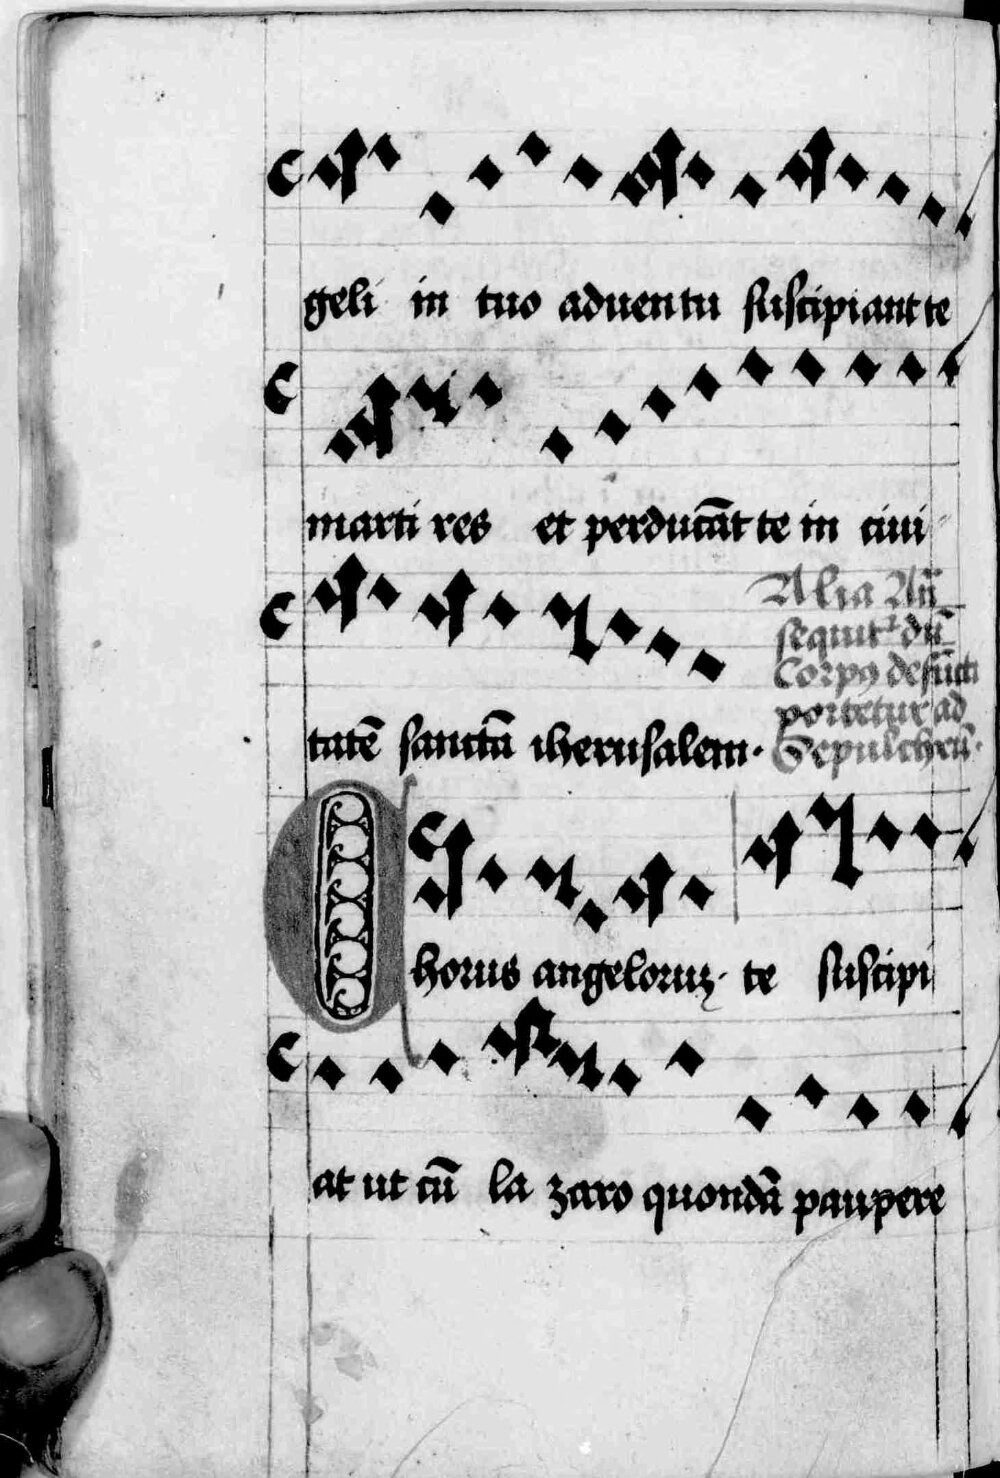 geli in tuo aduentu suscipiant te
marti res et perducāt te in ciui
Alia Añ
sequit᷑ dū
Corpꝯ defūcti
portetur ad
Sepulchrū.
tatē sanctā iherusalem.
Chorus angeloruꝫ. te suscipi
at ut cū la zaro quondā paupere